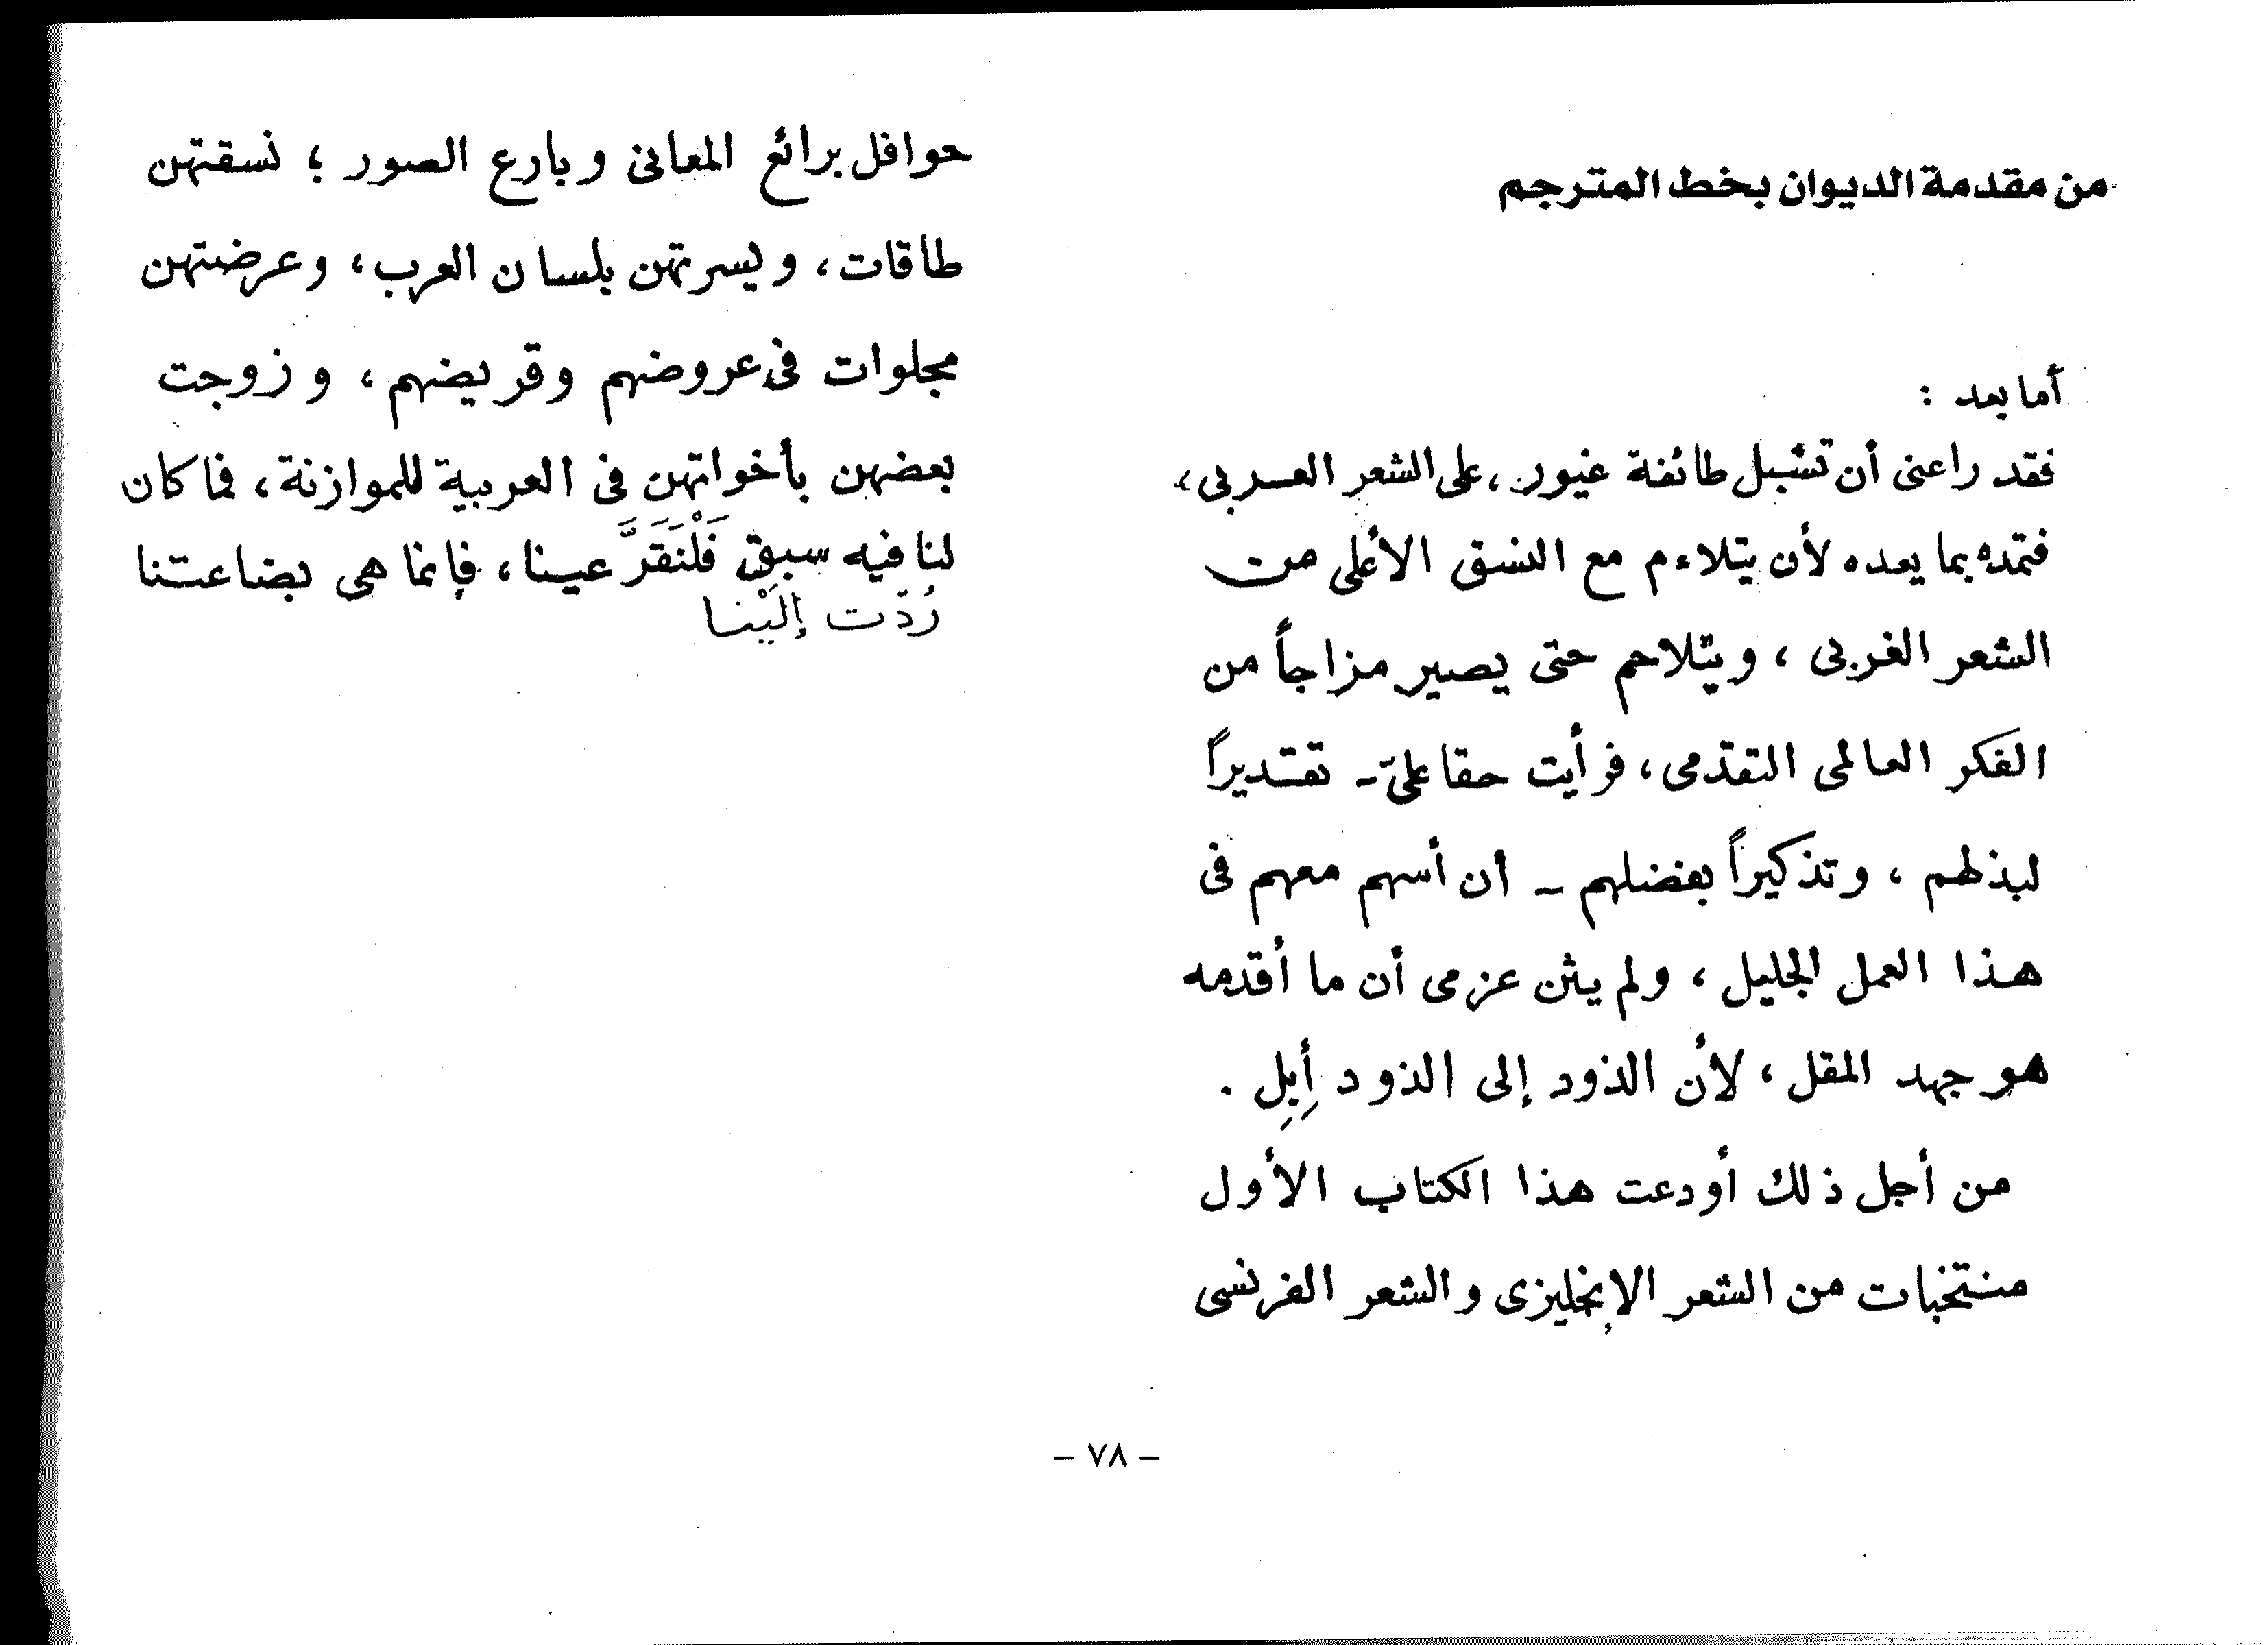 من مقدمة الديوان بخط المترجم
أما بعد :
فقد راعنى أن تشبل طائفة غيور، على الشعر العربى،
فتمده بما يعده لأن يتلاءم مع النسق الأعلى من
الشعر الغربى ، ويتلاحم حتى يصير مزاجاً من
الفكر العالمى التقدّمى، فرأيت حقا علىّ - تقديراً
لبذلهم ، وتذكيراً بفضلهم - أن أسهم معهم فى
هذا العمل الجليل ، ولم يثن عزمى أن ما أقدمه
هو جهد المقل ، لأن الذود إلى الذود إِبِل .
من أجل ذلك أودعت هذا الكتاب الأول
منتخبات من الشعر الإنجليزى والشعر الفرنسى
حوافل برائع المعانى وبارع الصور ؛ نسقتهن
طاقات ، ويسرتهن بلسان العرب ، وعرضتهن
مجلوات فى عروضهم وقريضهم ، وزوجت
بعضهن بأخواتهن فى العربية للموازنة ، فما كان
لنا فيه سبق فَلْنَقَرَّ عينا ، فإنما هى بضاعتنا
رُدّت إلَيْنا
- ٧٨ -